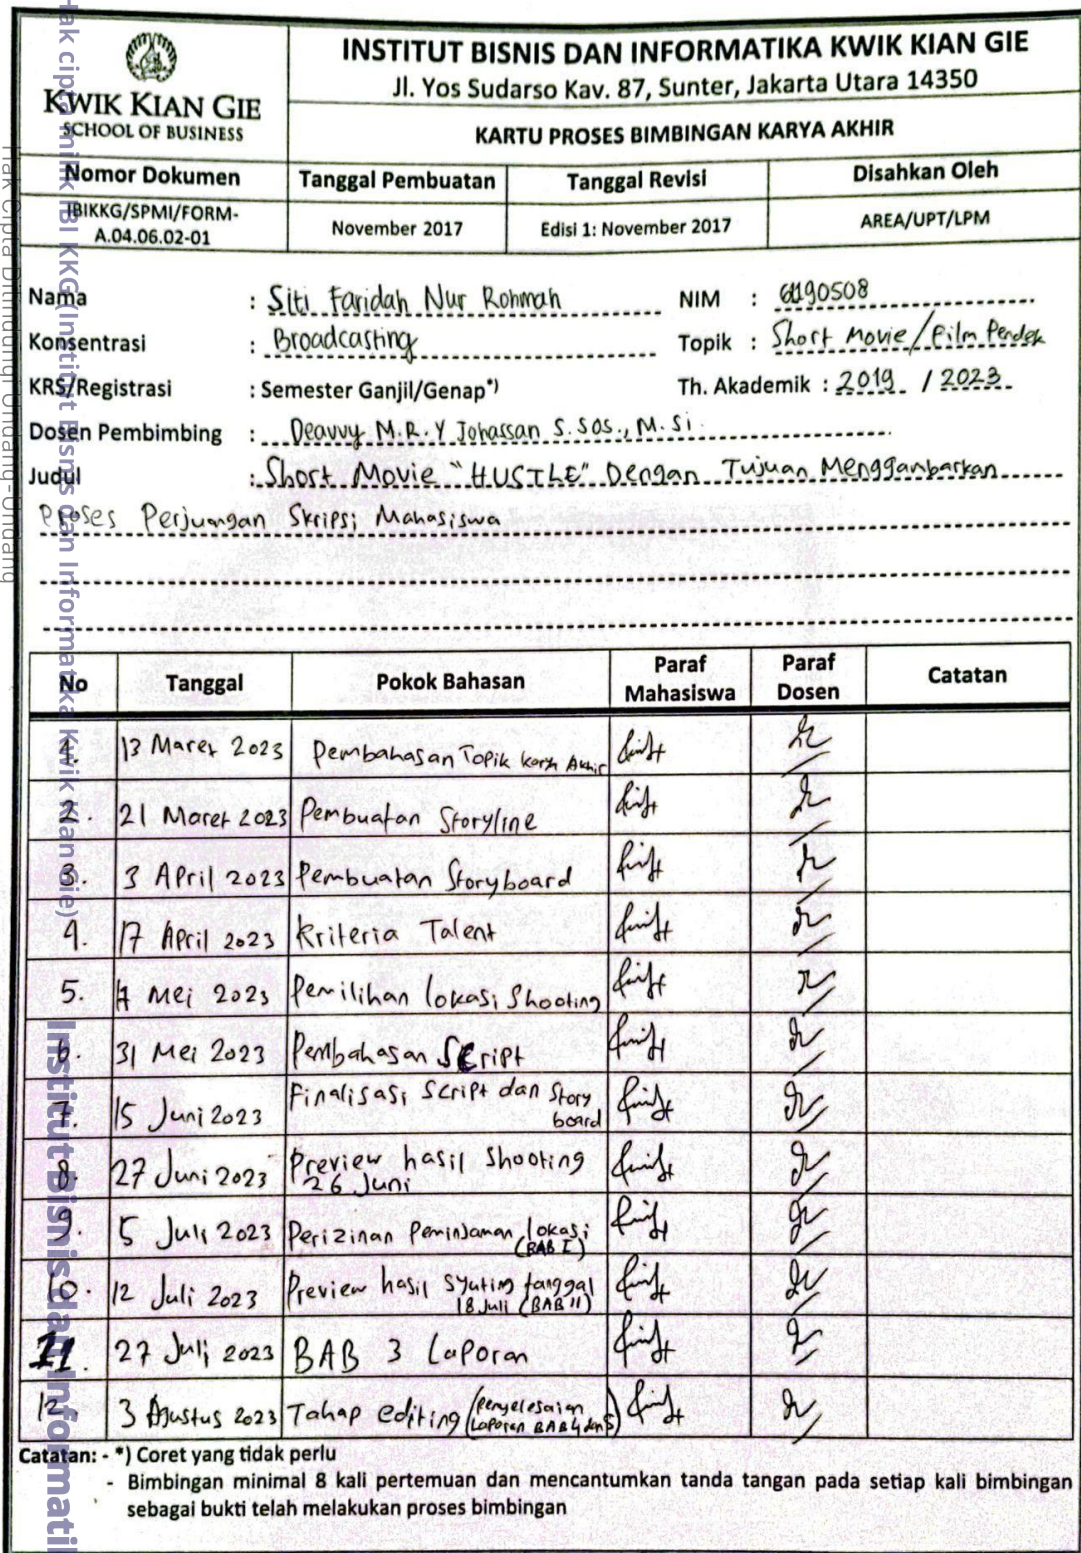 KWIK KIAN GIE
SCHOOL OF BUSINESS
INSTITUT BISNIS DAN INFORMATIKA KWIK KIAN GIE
Jl. Yos Sudarso Kav. 87, Sunter, Jakarta Utara 14350
KARTU PROSES BIMBINGAN KARYA AKHIR
Nomor Dokumen Tanggal Pembuatan Tanggal Revisi Disahkan Oleh
IBIKKG/SPMI/FORM-
A.04.06.02-01
November 2017 Edisi 1: November 2017 AREA/UPT/LPM
Nama : Siti Faridah Nur Rohmah NIM : 61190508
Konsentrasi : Broadcasting Topik : Short Movie/Film Pendek
KRS/Registrasi : Semester Ganjil/Genap*) Th. Akademik : 2019 / 2023
Dosen Pembimbing : Deavvy M.R.Y Johassan S.Sos., M.Si.
Judul : Short Movie "HUSTLE" Dengan Tujuan Menggambarkan
Proses Perjuangan Skripsi Mahasiswa
No Tanggal Pokok Bahasan Paraf Mahasiswa Paraf Dosen Catatan
1. 13 Maret 2023 Pembahasan Topik Karya Akhir
2. 21 Maret 2023 Pembuatan Storyline
3. 3 April 2023 Pembuatan Storyboard
4. 17 April 2023 Kriteria Talent
5. Mei 2023 Pemilihan lokasi Shooting
6. 31 Mei 2023 Pembahasan Script
7. 15 Juni 2023 Finalisasi Script dan Story
board
8. 27 Juni 2023 Preview hasil Shooting
26 Juni
9. 5 Juli 2023 Perizinan Peminjaman lokasi
(BAB I)
10. 12 Juli 2023 Preview hasil Syuting tanggal
18 Juli (BAB II)
11. 27 Juli 2023 BAB 3 Laporan
12 3 Agustus 2023 Tahap editing (Penyelesaian
Laporan BAB 4 dan 5)
Catatan: - *) Coret yang tidak perlu
- Bimbingan minimal 8 kali pertemuan dan mencantumkan tanda tangan pada setiap kali bimbingan
sebagai bukti telah melakukan proses bimbingan
Hak cipta milik IBI KKG (Institut Bisnis dan Informatika Kwik Kian Gie)
Hak Cipta Dilindungi Undang-Undang
Institut Bisnis dan Informati